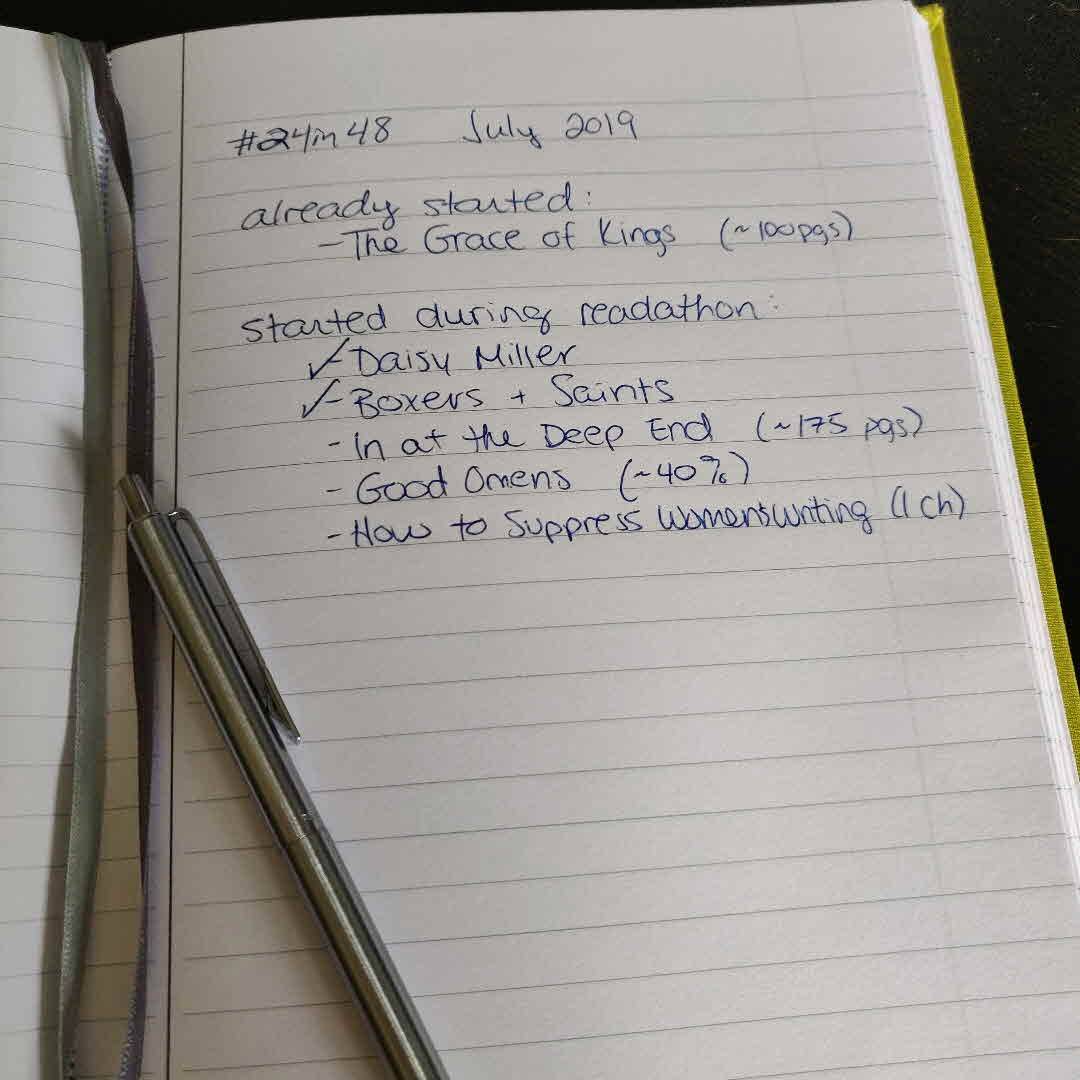 #24in48 July 2019
already started:
- The Grace of Kings (~100pgs)
started during readathon:
✓ Daisy Miller
✓ Boxers + Saints
- In at the Deep End (~175 pgs)
- Good Omens (~40%)
- How to Suppress Women's Writing (1 ch)